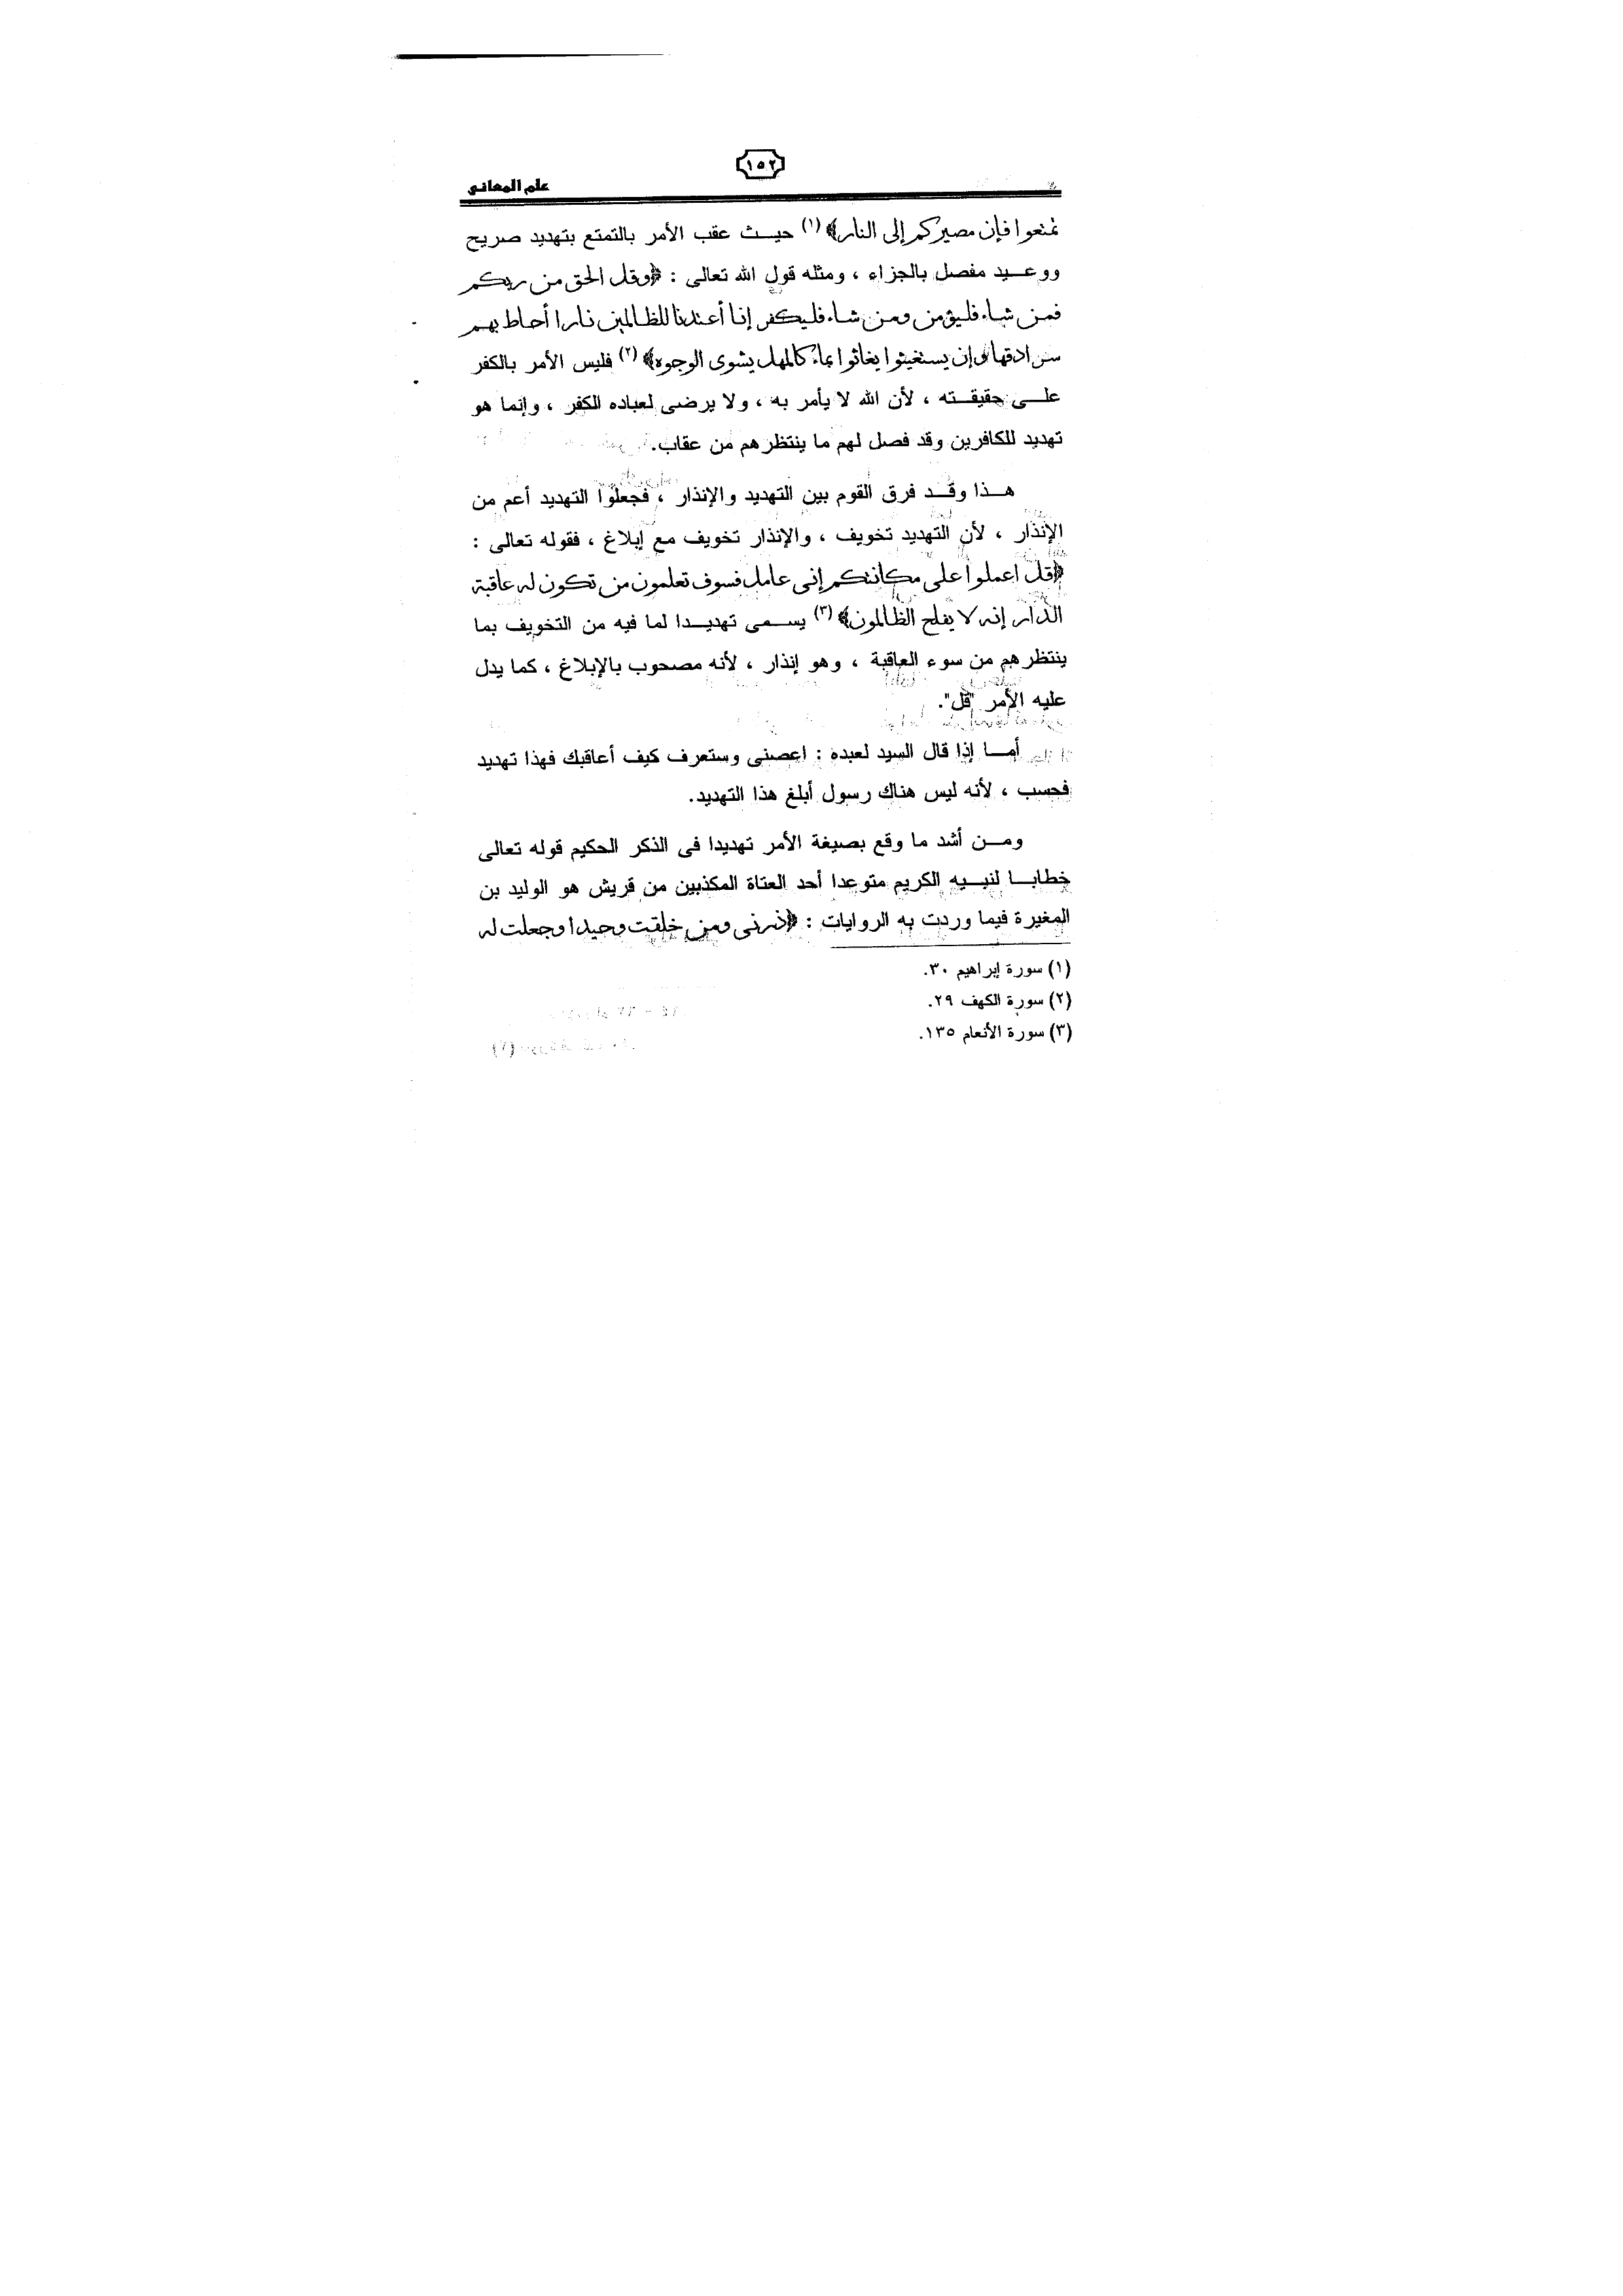 ١٥٢
علم المعانى
تمتعوا فإن مصيركم إلى النار﴾ (١) حيث عقب الأمر بالتمتع بتهديد صريح
ووعيد مفصل بالجزاء ، ومثله قول الله تعالى : ﴿وقل الحق من ربكم
فمن شاء فليؤمن ومن شاء فليكفر إنا أعتدنا للظالمين نارا أحاط بهم
سرادقها وإن يستغيثوا يغاثوا بماء كالمهل يشوى الوجوه﴾ (٢) فليس الأمر بالكفر
على حقيقته ، لأن الله لا يأمر به ، ولا يرضى لعباده الكفر ، وإنما هو
تهديد للكافرين وقد فصل لهم ما ينتظرهم من عقاب.
هذا وقد فرق القوم بين التهديد والإنذار ، فجعلوا التهديد أعم من
الإنذار ، لأن التهديد تخويف ، والإنذار تخويف مع إبلاغ ، فقوله تعالى :
﴿قل اعملوا على مكانتكم إنى عامل فسوف تعلمون من تكون له عاقبة
الدار إنه لا يفلح الظالمون﴾ (٣) يسمى تهديدا لما فيه من التخويف بما
ينتظرهم من سوء العاقبة ، وهو إنذار ، لأنه مصحوب بالإبلاغ ، كما يدل
عليه الأمر "قل".
أما إذا قال السيد لعبده : اعصنى وستعرف كيف أعاقبك فهذا تهديد
فحسب ، لأنه ليس هناك رسول أبلغ هذا التهديد.
ومن أشد ما وقع بصيغة الأمر تهديدا فى الذكر الحكيم قوله تعالى
خطابا لنبيه الكريم متوعدا أحد العتاة المكذبين من قريش هو الوليد بن
المغيرة فيما وردت به الروايات : ﴿ذرنى ومن خلقت وحيدا وجعلت له
(١) سورة إبراهيم ٣٠.
(٢) سورة الكهف ٢٩.
(٣) سورة الأنعام ١٣٥.